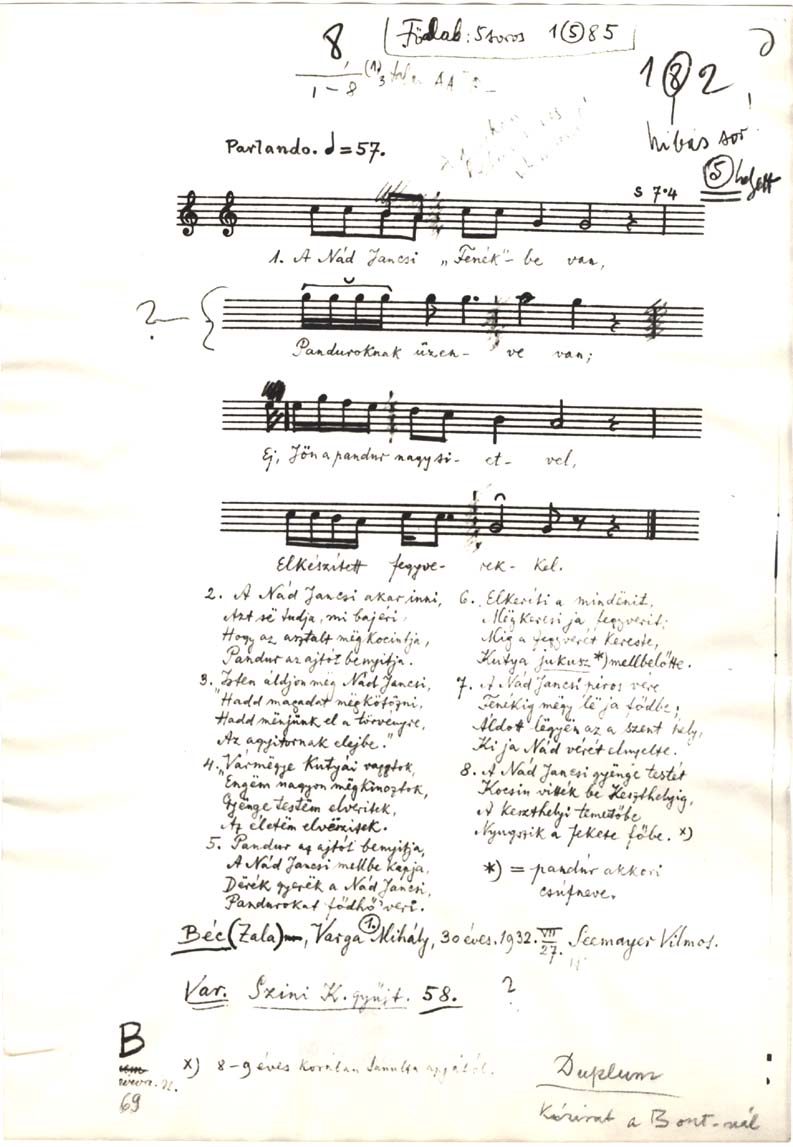 8
1-8
Főalak: 5 soros 1(5)85
1 (8) 2
hibás sor
(5) helyett
Parlando. = 57.
S 7·4
1. A Nád Jancsi „Fenék"- be van,
?
Panduroknak üzen- ve van;
Ej, Jön a pandur nagy si- et- vel,
Elkészített fegyve- rek- kel.
2. A Nád Jancsi akar inni,
Azt së tudja, mi bajéri,
Hogy az asztalt mëgkocintja,
Pandur az ajtót benyitja.
3. „Isten áldjon mëg Nád Jancsi,
Hadd magadat mëgkötözni,
Hadd mënjünk el a törvényre,
Az agyitornak elejbe."
4. Vármëgye kutyái vagytok,
Engëm nagyon mëgkinoztok,
Gyënge testëm elveritek,
Az életëm elvëszitek.
5. Pandur az ajtót benyitja,
A Nád Jancsi mellbe kapja,
Dërék gyerëk a Nád Jancsi,
Pandurokat födhö veri.
6. Elkeríti a mindënit,
Mëgkeresi ja fegyverit;
Mig a fegyverët kereste,
Kutya jukusz *) mellbelőtte.
7. A Nád Jancsi piros vére
Fenékig mëgy lë ja födbe;
Áldot lëgyën az a szent hely,
Ki ja Nád vérët elnyelte.
8. A Nád Jancsi gyënge testét
Kocsin vitték be Keszthelyig,
A keszthelyi temetőbe
Nyugszik a fekete főbe. x)
*) = pandúr akkori
csúfneve.
Béc (Zala), Varga (1.) Mihály, 30 éves. 1932. VII 27. Seemayer Vilmos.
Var. Szini K. gyűjt. 58. ?
B
69
x) 8-9 éves korában tanulta apjától.
Duplum
Kézirat a Bont.-nál